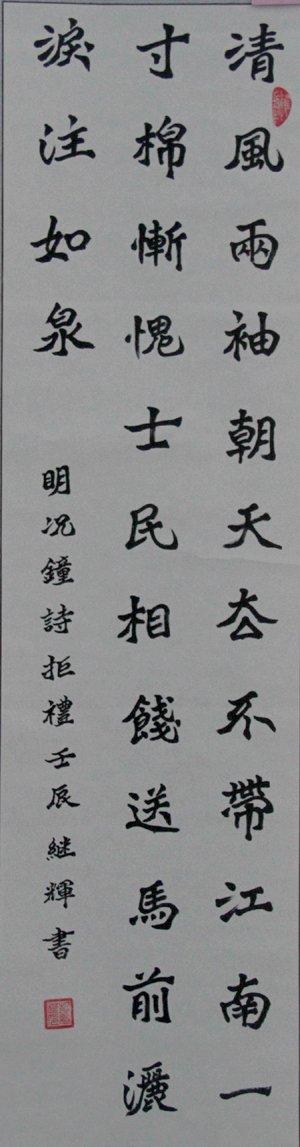 清風兩袖朝天去不帶江南一
寸棉慚愧士民相餞送馬前灑
淚注如泉
明况鐘詩拒禮壬辰继輝書